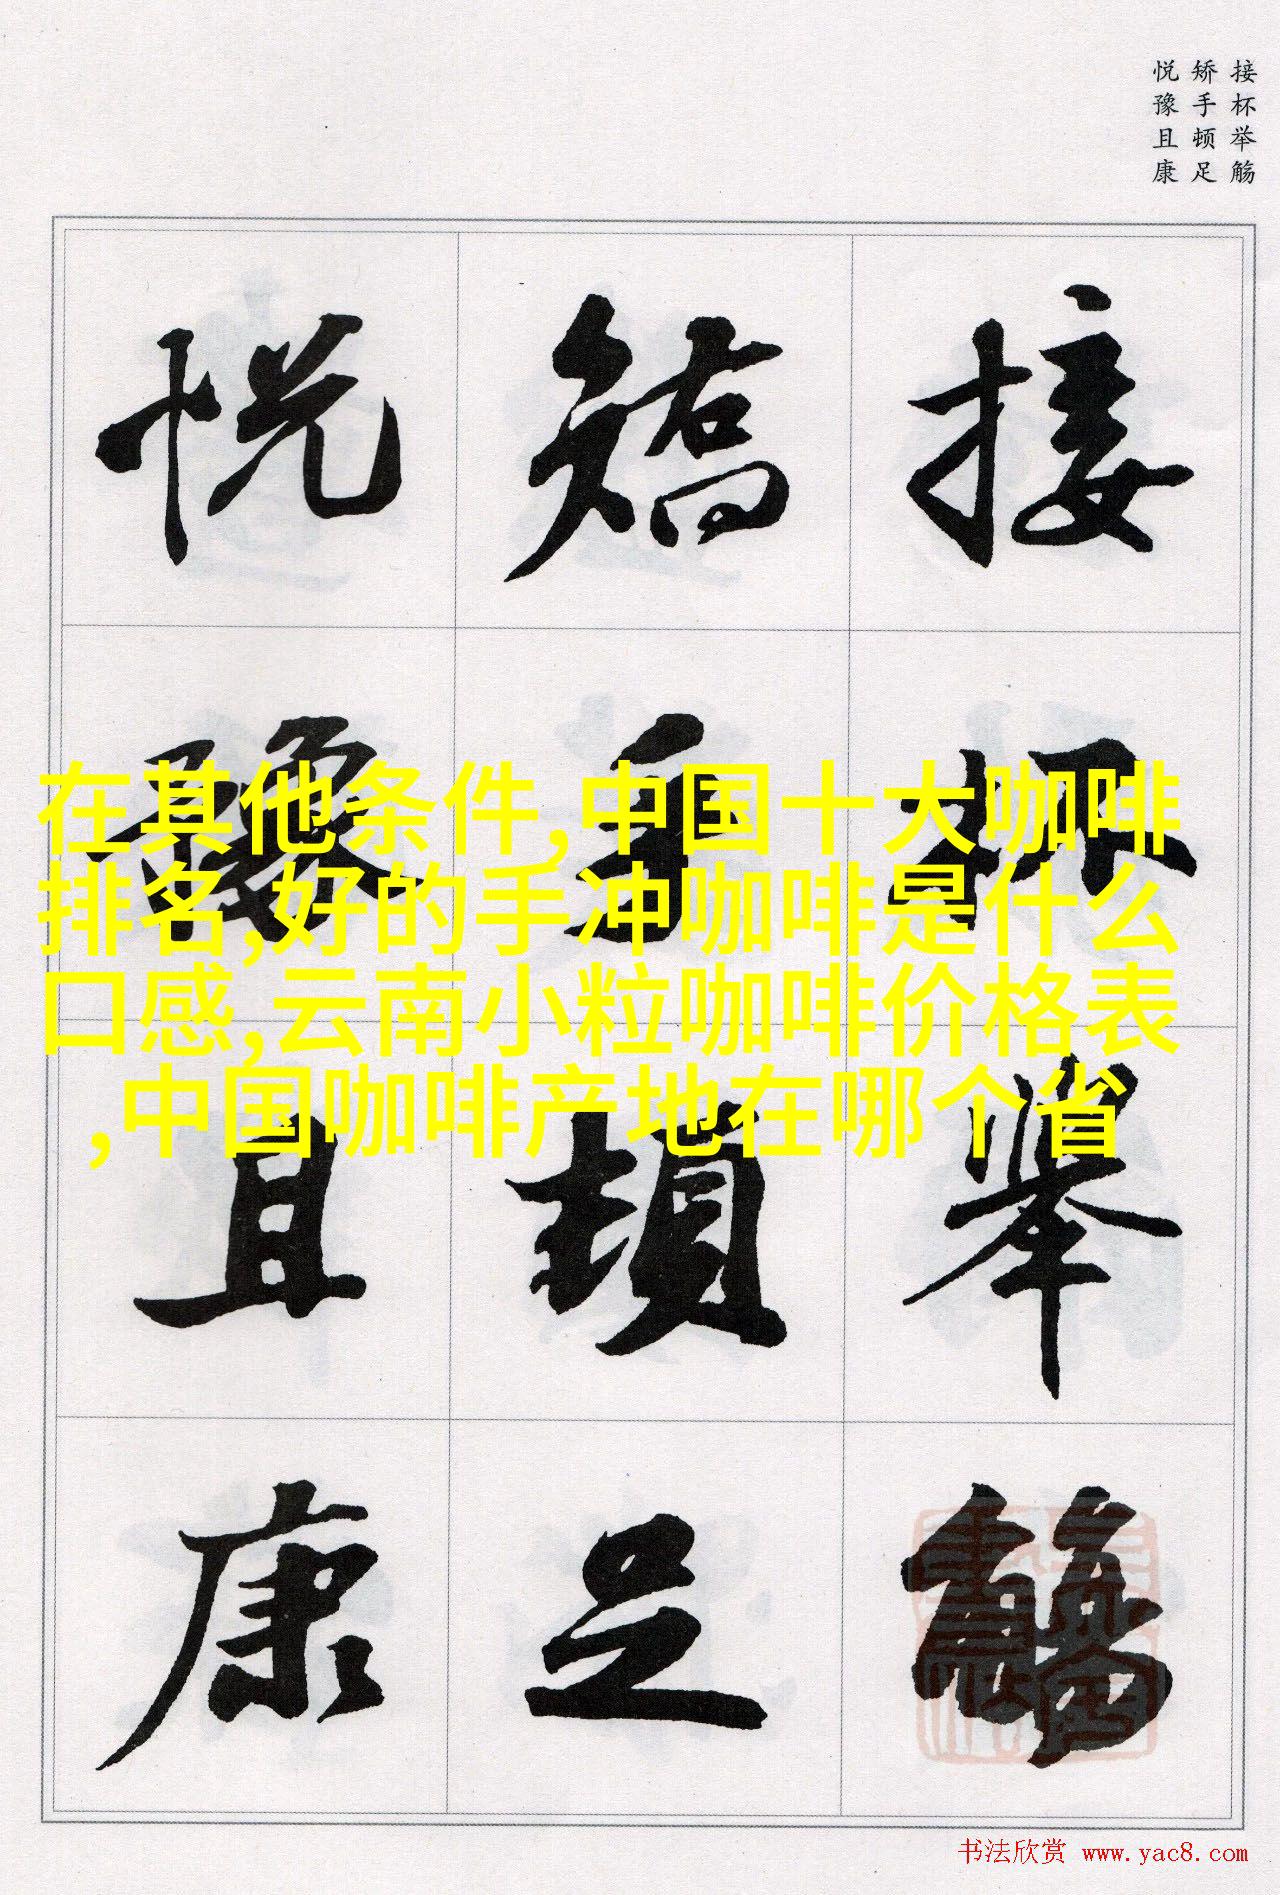 接杯举觞
矫手顿足
悦豫且康
接杯舉觴
矯手頓足
悦豫且康
在其他条件,中国十大咖啡
排名,好的手冲咖啡是什么
口感,云南小粒咖啡价格表
,中国咖啡产地在哪个省
书法欣赏 www.yac8.com